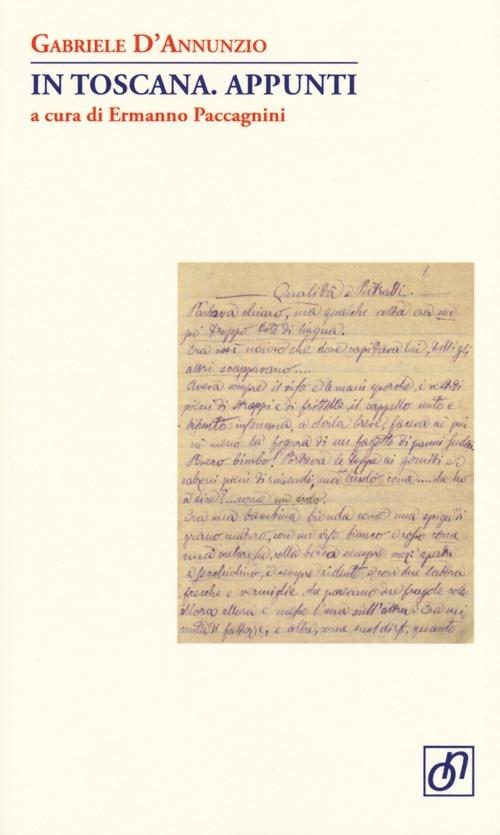 GABRIELE D'ANNUNZIO
IN TOSCANA. APPUNTI
a cura di Ermanno Paccagnini
1.
Qualità e Ritratti.
Parlava chiaro, ma qualche volta era un
po' troppo lesto di lingua.
Era così noioso che dove capitava lui, tutti gli
altri scappavano....
Aveva sempre il viso e le mani sporche, i vestiti
pieni di strappi e di frittelle, il cappello unto e
bisunto: insomma, a dirla breve, faceva nè più
nè meno la figura di un fagotto di panni sudici.
Povero bimbo! Portava le toppe ai gomiti e i
calzoni pieni di rimendi, ma lindo come.... che ho
a dire?... come uno specchio.
Era una bambina bionda come una spiga di
grano maturo, con un viso bianco e rosso come
una melarosa, colla bocca sempre mezz'aperta
a fecchiolino, e sempre ridente, e con due labbra
fresche e vermiglie, che parevano due fragole colte
allora allora e messe l'una sull'altra. Era mi-
nuta di fattezze, e alta, come suol dirsi, quanto